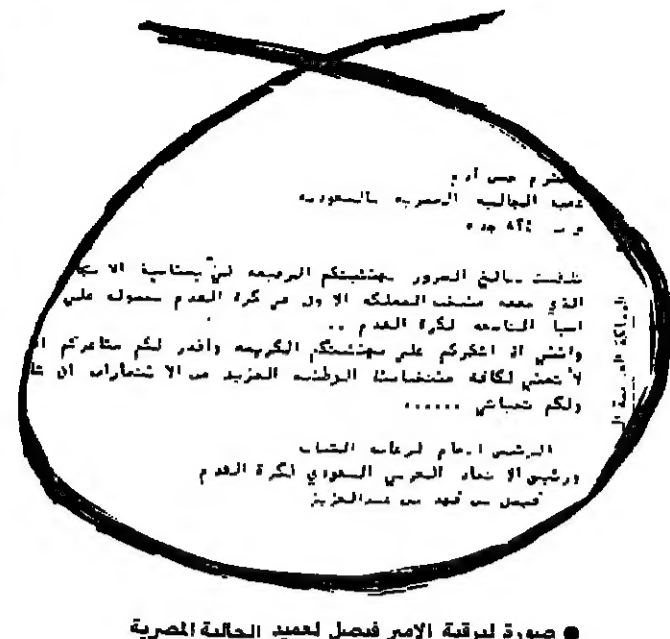 حسن آدم
الجالية المصرية بالسعودية
جده
تلقيت ببالغ السرور تهنئتكم الرقيقة لي بمناسبة
الذي حققه منتخب المملكة الاول في كرة القدم بحصوله على
اسيا التاسعة لكرة القدم ..
وانني اذ اشكركم على تهنئتكم الكريمة واقدر لكم مشاعركم
لأتمنى لكافة منتخباتنا الوطنية المزيد من الانتصارات ان
ولكم تحياتي ......
الرئيس العام لرعاية الشباب
ورئيس الاتحاد العربي السعودي لكرة القدم
فيصل بن فهد بن عبدالعزيز
المملكة العربية
● صورة لبرقية الامير فيصل لعميد الجالية المصرية